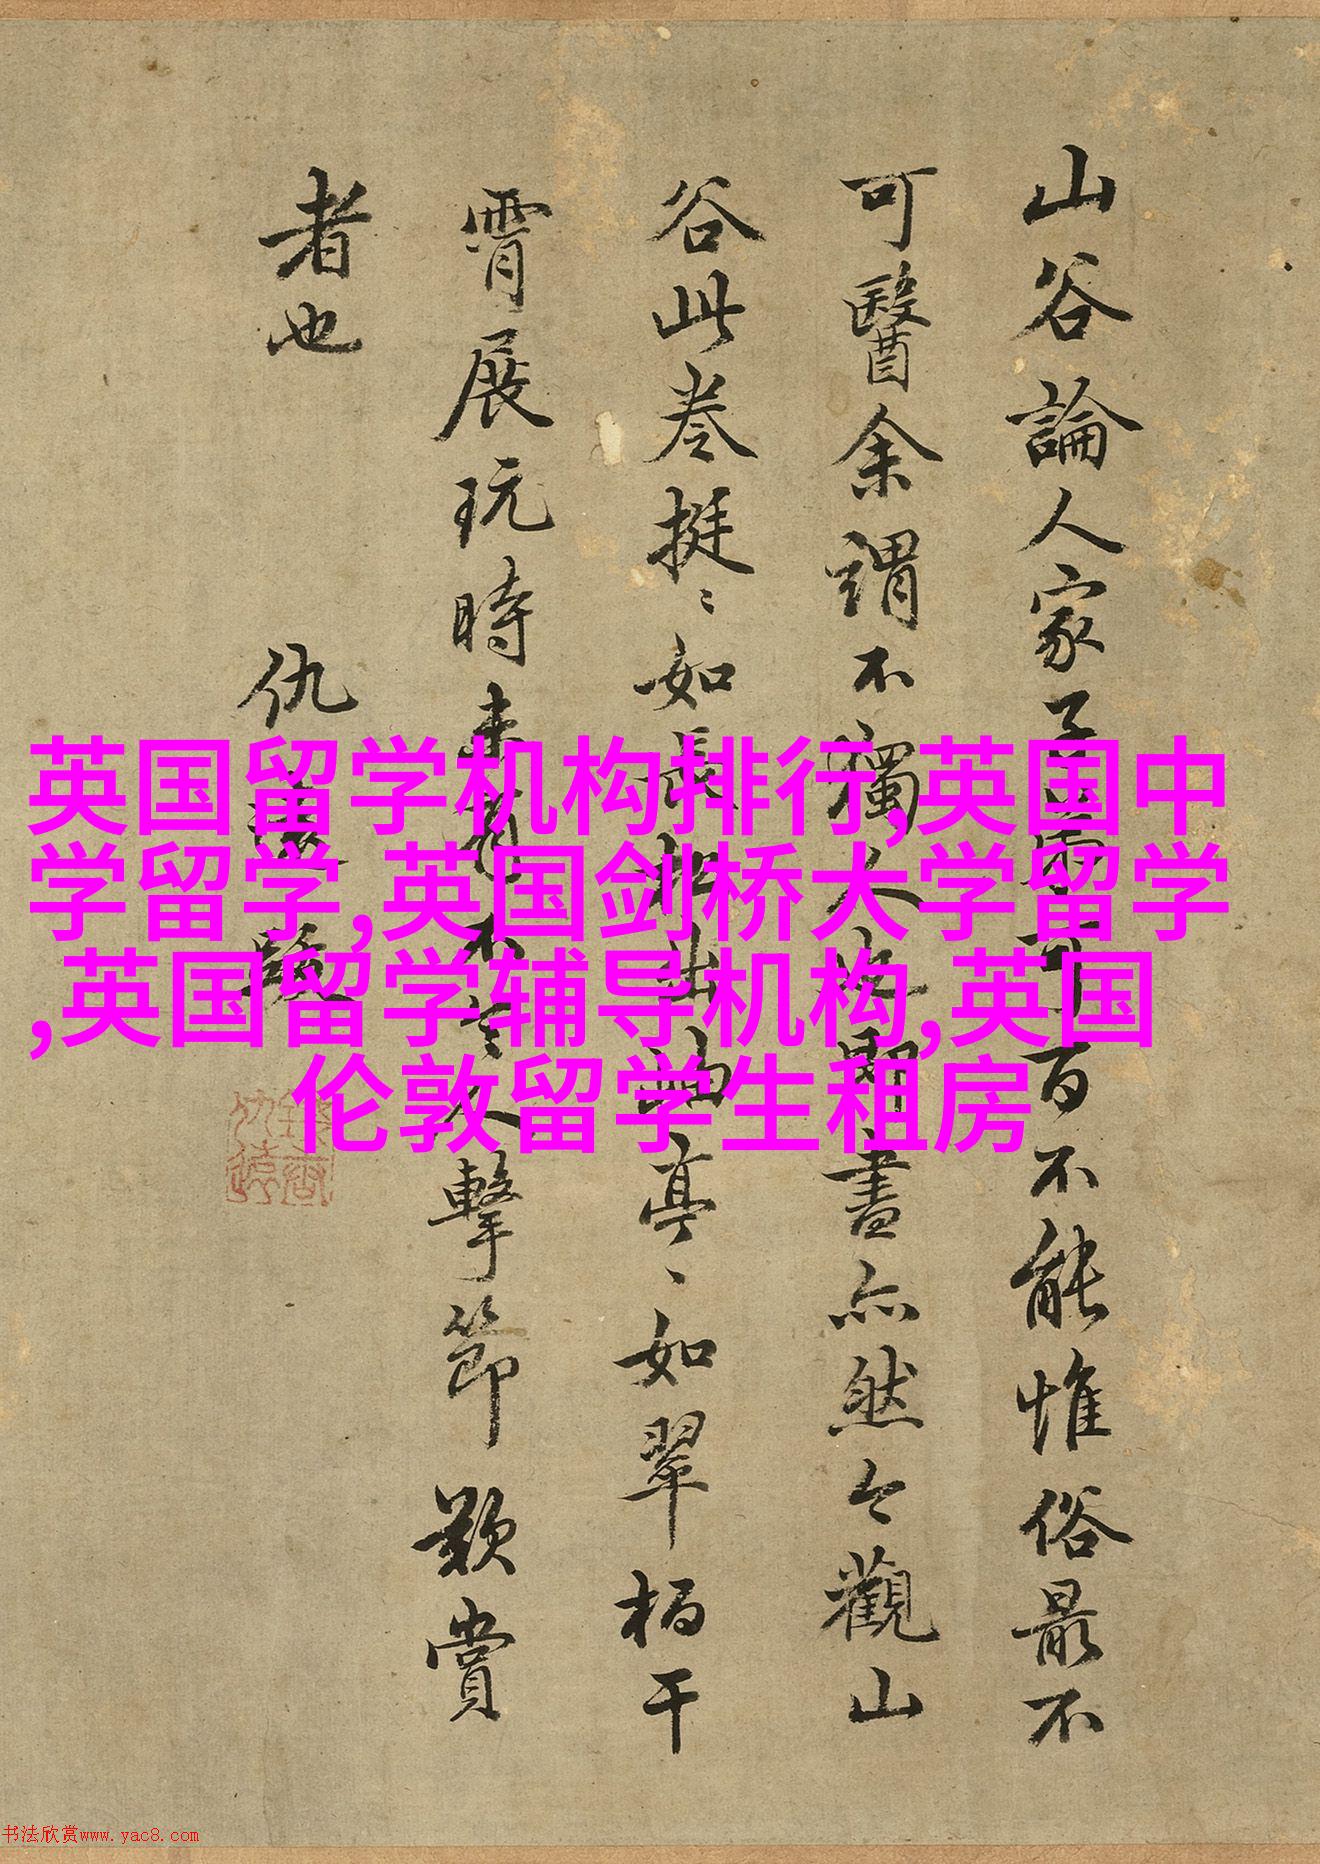 山谷論人家子弟可百不能惟俗最不
可醫余謂不獨人也即書亦然今觀山
谷此卷挺〻如長松出岫亭〻如翠栢干
霄展玩時未有不令人擊節歎賞
者也
仇遠
英国留学机构排行,英国中
学留学,英国剑桥大学留学
,英国留学辅导机构,英国
伦敦留学生租房
书法欣赏www.yac8.com